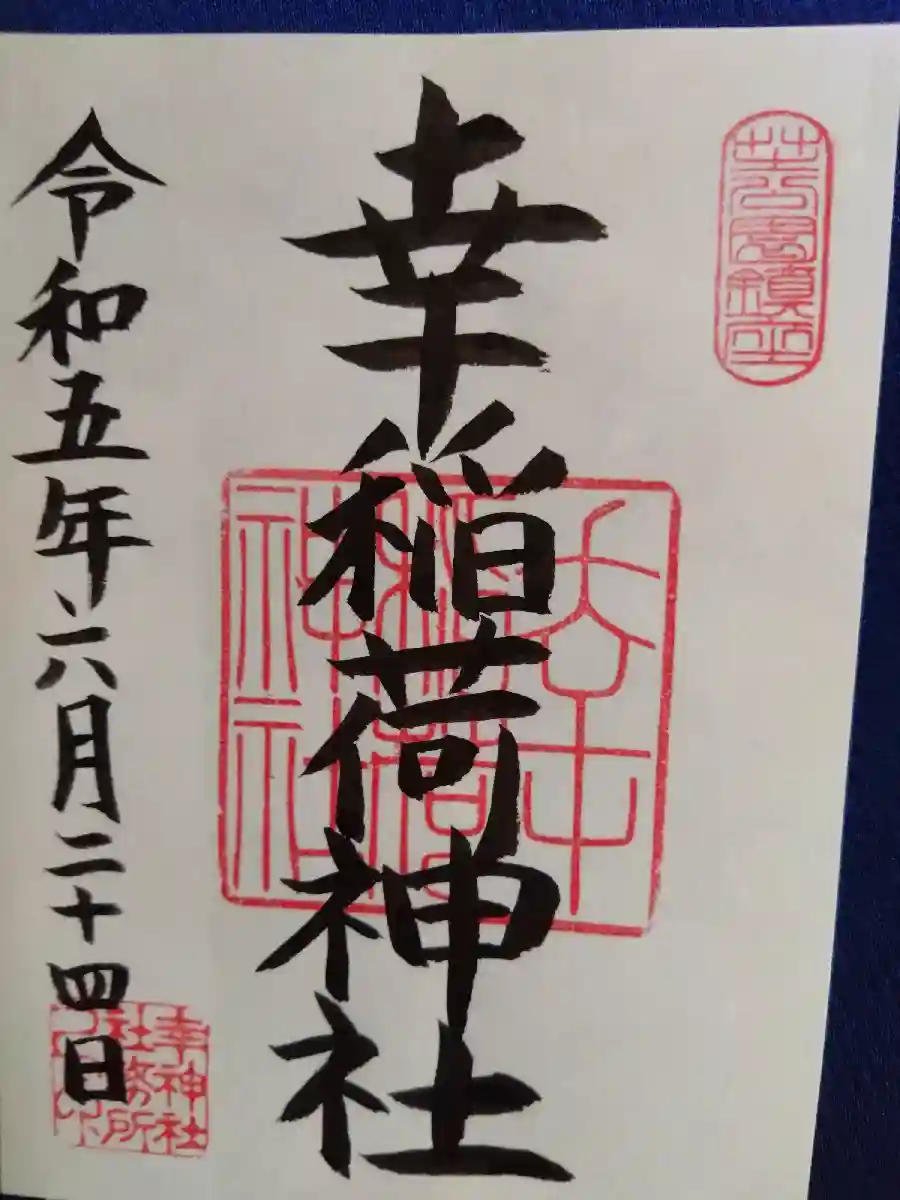 芝公園鎮座
幸稲荷神社
幸
稲荷
神社
令和五年六月二十四日
幸神社
社務所